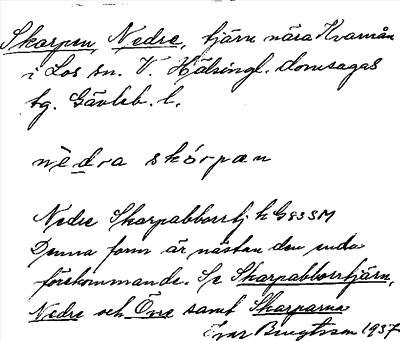 Skarpen, Nedre, tjärn nära Kvarnån
i Los sn. V. Hälsingl. domsagas
tg. Gävleb. l.
nèdra skórpan
Nedre Skarpabborrtj. k G83SM
Denna form är nästan den enda
förekommande. Se Skarpabborrtjärn,
Nedre och Övre samt Skarparna
Ivar 1937